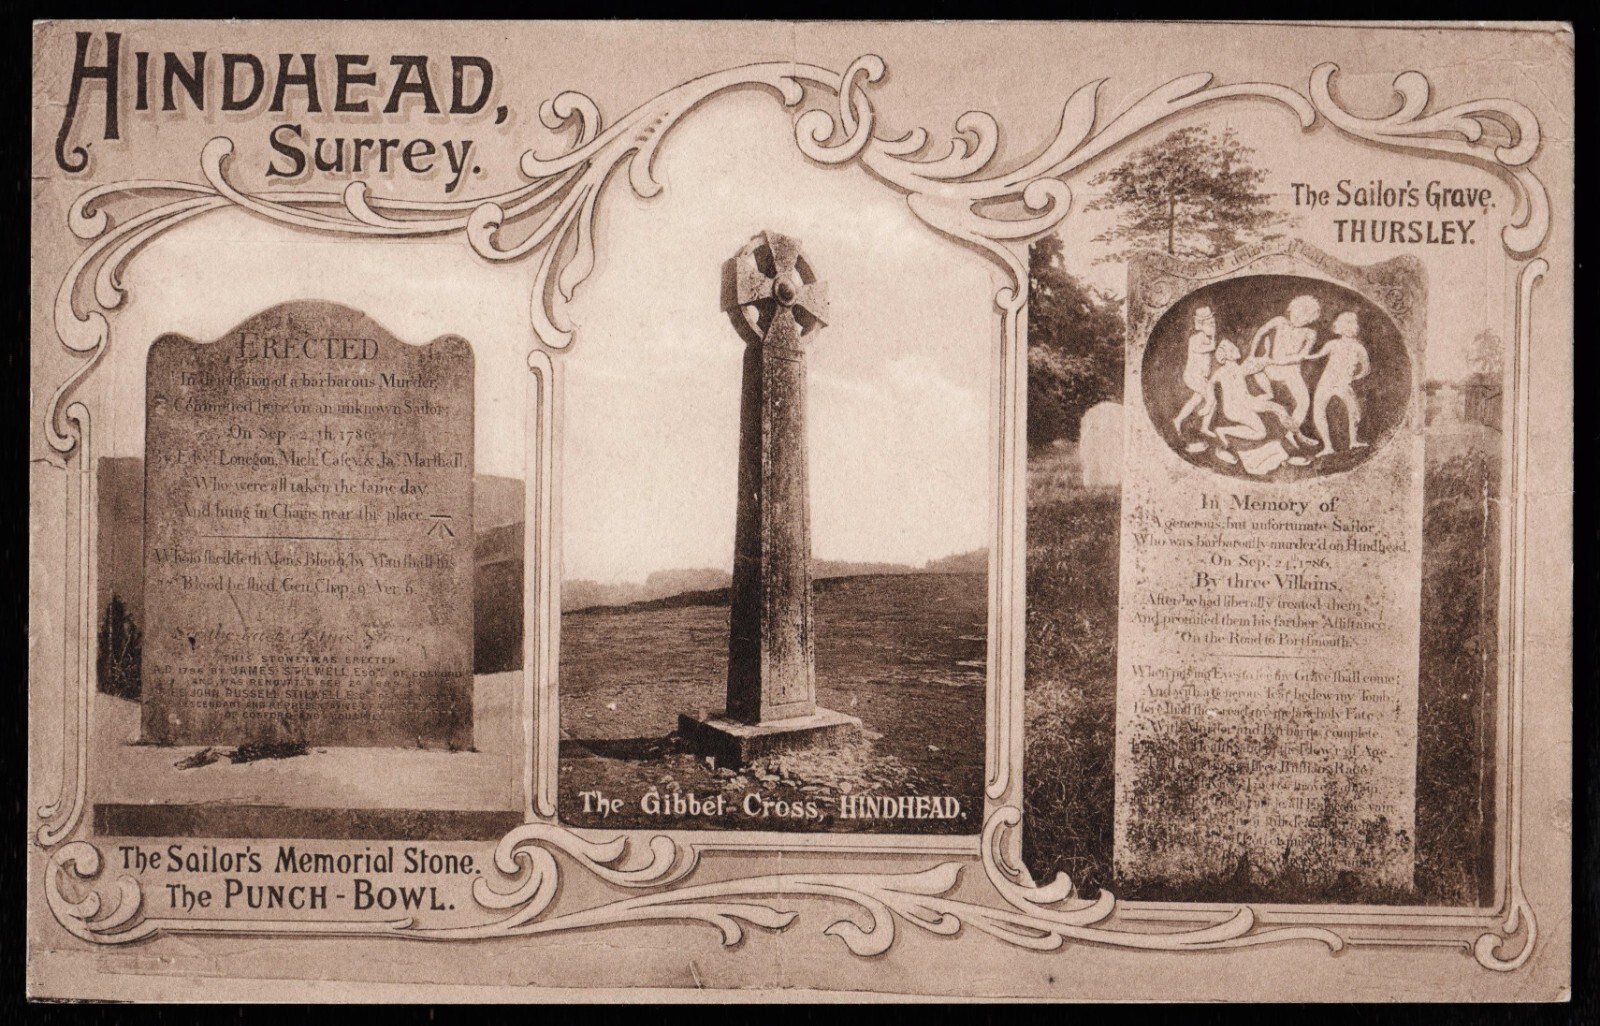 HINDHEAD,
Surrey.
ERECTED
In detestation of a barbarous Murder,
Committed here on an unknown Sailor;
On Sep. th. 1786.
Lonegon, Mich. Casey & Jas. Marshall,
Who were all taken the same day
And hung in Chains near this place
Whoso sheddeth Man's Blood, by Man shall his
Blood be shed. Gen. Chap. 9 Ver. 6.
See the back of this Stone
THIS STONE WAS ERECTED
A.D. 1786 BY JAMES STILWELL ESQRE OF COSFORD
AND WAS RENOVATED SEP.
JOHN RUSSELL STILWELL
DESCENDANT AND REPRESENTATIVE
OF COSFORD AND
The Sailor's Memorial Stone.
The PUNCH-BOWL.
The Gibbet-Cross, HINDHEAD.
The Sailor's Grave.
THURSLEY.
In Memory of
A generous, but unfortunate Sailor,
Who was barbarously murder'd on Hindhead,
On Sep. 24, 1786,
By three Villains,
After he had liberally treated them,
And promised them his farther Assistance,
On the Road to Portsmouth.
When pitying Eyes to see my Grave shall come;
And with a generous Tear bedew my Tomb;
Here shall they read my melancholy Fate
With Murder and Barbarity complete,
Health and in the Flow'r of Age
Ruffians Rage;
vain